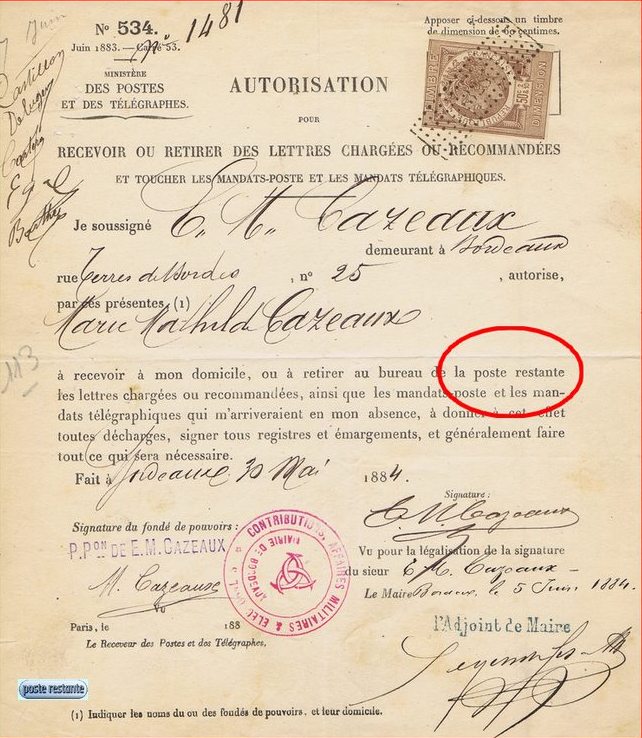 Nº 534.
nº 1481
Juin 1883. — Carré 53.
Apposer ci-dessous un timbre
de dimension de 60 centimes.
Juin
Castillon
MINISTÈRE
DES POSTES
ET DES TÉLÉGRAPHES.
DIMENSION
AUTORISATION
POUR
RECEVOIR OU RETIRER DES LETTRES CHARGÉES OU RECOMMANDÉES
ET TOUCHER LES MANDATS-POSTE ET LES MANDATS TÉLÉGRAPHIQUES.
Je soussigné E. M. Cazeaux
demeurant à Bordeaux
rue Terres de Bordes, nº 25, autorise,
par ces présentes, (1)
Marie Mathilde Cazeaux
113
à recevoir à mon domicile, ou à retirer au bureau de la poste restante
les lettres chargées ou recommandées, ainsi que les mandats-poste et les man-
dats télégraphiques qui m'arriveraient en mon absence, à donner à cet effet
toutes décharges, signer tous registres et émargements, et généralement faire
tout ce qui sera nécessaire.
Fait à Bordeaux 30 Mai 1884.
Signature:
E. M. Cazeaux
Signature du fondé de pouvoirs :
P.PON DE E.M. CAZEAUX
M. Cazeaux
CONTRIBUTIONS, AFFAIRES MILITAIRES & ELECTIONS
MAIRIE DE BORDEAUX
Vu pour la légalisation de la signature
du sieur E. M. Cazeaux
Le Maire Bordeaux, le 5 Juin 1884.
Vu
Paris, le 188
Le Receveur des Postes et des Télégraphes,
l'Adjoint de Maire
poste restante
(1) Indiquer les noms du ou des fondés de pouvoirs, et leur domicile.